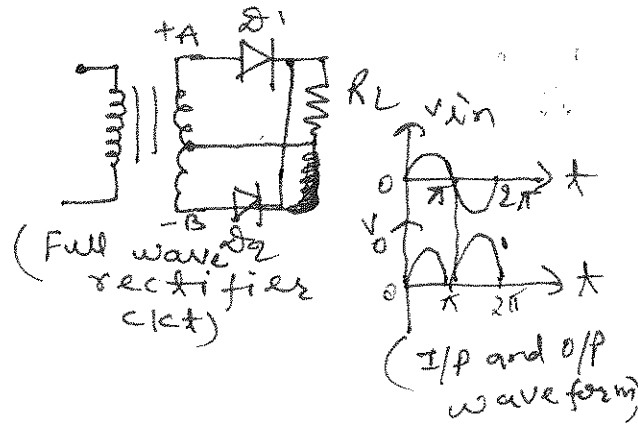 +A
D1
RL
-B
D2
(Full wave
rectifier
ckt)
Vin
0
π
2π
t
V0
0
π
2π
t
(I/P and O/P
waveform)